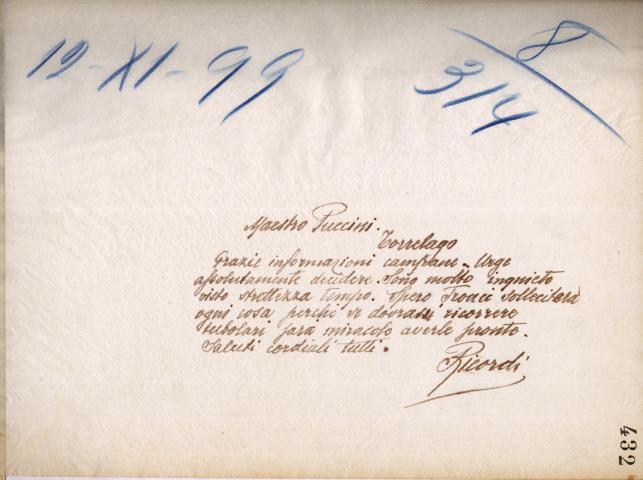 12-XI-99
8
314
Maestro Puccini.
Torrelago
Grazie informazioni campane. Urge
assolutamente decidere. Sono molto inquieto
visto strettezza tempo. Spero Tronci solleciterà
ogni cosa perchè se dovrassi ricorrere
tubolari sarà miracolo averle pronte.
Saluti cordiali tutti.
Ricordi
432